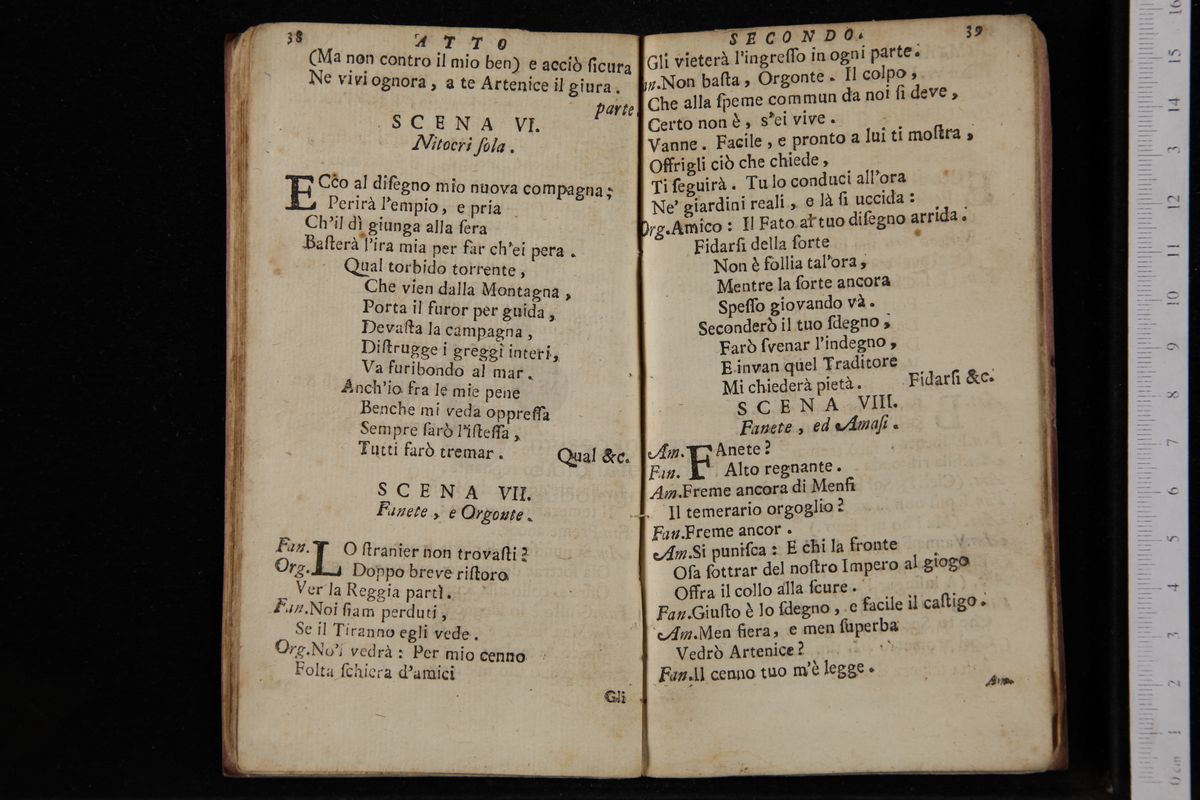 38
ATTO
(Ma non contro il mio ben) e acciò ſicura
Ne vivi ognora, a te Artenice il giura.
parte.
SCENA VI.
Nitocri ſola.
ECco al diſegno mio nuova compagna;
Perirà l'empio, e pria
Ch'il dì giunga alla ſera
Baſterà l'ira mia per far ch'ei pera.
Qual torbido torrente,
Che vien dalla Montagna,
Porta il furor per guida,
Devaſta la campagna,
Diſtrugge i greggi interi,
Va furibondo al mar.
Anch'io fra le mie pene
Benche mi veda oppreſſa
Sempre ſarò l'iſteſſa,
Tutti farò tremar. Qual &c.
SCENA VII.
Fanete, e Orgonte.
Fan. LO ſtranier non trovaſti?
Org. Doppo breve riſtoro
Ver la Reggia partì.
Fan.Noi ſiam perduti,
Se il Tiranno egli vede.
Org.No'l vedrà: Per mio cenno
Folta ſchiera d'amici
Gli
SECONDO.
39
Gli vieterà l'ingreſſo in ogni parte.
an.Non baſta, Orgonte. Il colpo,
Che alla ſpeme commun da noi ſi deve,
Certo non è, s'ei vive.
Vanne. Facile, e pronto a lui ti moſtra,
Offrigli ciò che chiede,
Ti ſeguirà. Tu lo conduci all'ora
Ne' giardini reali, e là ſi uccida:
Org.Amico: Il Fato al tuo diſegno arrida.
Fidarſi della ſorte
Non è follia tal'ora,
Mentre la ſorte ancora
Speſſo giovando và.
Seconderò il tuo ſdegno,
Farò ſvenar l'indegno,
E invan quel Traditore
Mi chiederà pietà. Fidarſi &c.
SCENA VIII.
Fanete, ed Amaſi.
Am. FAnete?
Fan. Alto regnante.
Am.Freme ancora di Menfi
Il temerario orgoglio?
Fan.Freme ancor.
Am.Si puniſca: E chi la fronte
Oſa ſottrar del noſtro Impero al giogo
Offra il collo alla ſcure.
Fan.Giuſto è lo ſdegno, e facile il caſtigo.
Am.Men fiera, e men ſuperba
Vedrò Artenice?
Fan.Il cenno tuo m'è legge.
Am.
0 cm
1
2
3
4
5
6
7
8
9
10
11
12
13
14
15
16